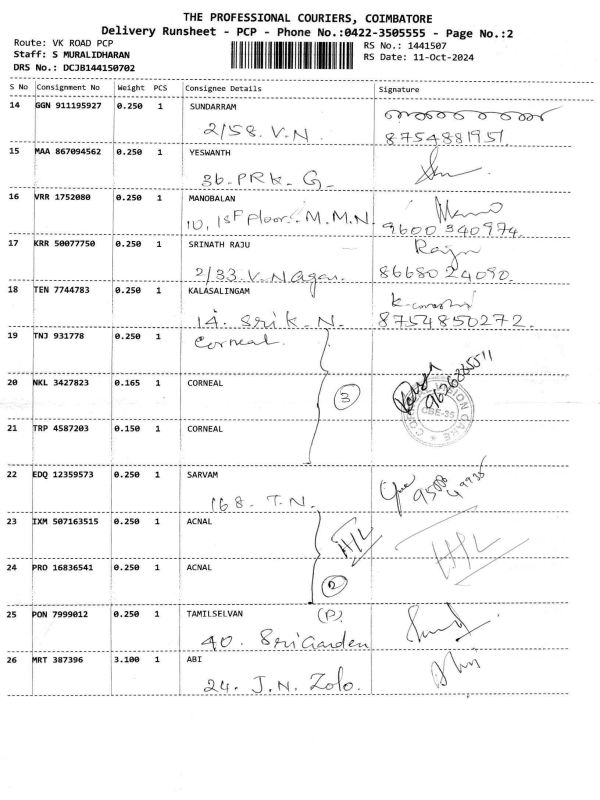 THE PROFESSIONAL COURIERS, COIMBATORE
Delivery Runsheet - PCP - Phone No.:0422-3505555 - Page No.:2
Route: VK ROAD PCP
Staff: S MURALIDHARAN
DRS No.: DCJB144150702
RS No.: 1441507
RS Date: 11-Oct-2024
S No Consignment No Weight PCS Consignee Details Signature
14 GGN 911195927 0.250 1 SUNDARRAM
2/58. V.N. 8754881951.
15 MAA 867094562 0.250 1 YESWANTH
36. PRK. G.
16 VRR 1752080 0.250 1 MANOBALAN
10, 1st Floor. M.M.N. 9600340974.
17 KRR 50077750 0.250 1 SRINATH RAJU Raju
2/33. V.Nagar. 8668024090.
18 TEN 7744783 0.250 1 KALASALINGAM
14. Sri K. N. 8754850272.
19 TNJ 931778 0.250 1 Corneal.
20 NKL 3427823 0.165 1 CORNEAL 3
CBE-35
21 TRP 4587203 0.150 1 CORNEAL
22 EDQ 12359573 0.250 1 SARVAM
168. T.N.
23 IXM 507163515 0.250 1 ACNAL
H/L H/L
24 PRO 16836541 0.250 1 ACNAL
2
25 PON 7999012 0.250 1 TAMILSELVAN (P)
40. Sri Garden
26 MRT 387396 3.100 1 ABI
24. J.N. Zolo.